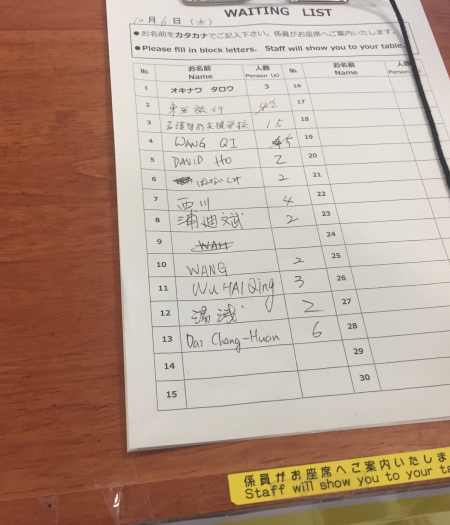 WAITING LIST
10月6日（水）
●お名前をカタカナでご記入下さい。係員がお座席へご案内いたします。
●Please fill in block letters. Staff will show you to your table.
No. お名前 Name 人数 Person (s) No. お名前 Name 人数 Person
1 オキナワ タロウ 3 16
2 17
3 15 18
4 WANG QI 5 19
5 DAVID HO 2 20
6 2 21
7 西川 4 22
8 浦迪文斌 2 23
9 24
10 WANG 2 25
11 WU HAI Qing 3 26
12 湯浅 2 27
13 Dai Chang-Huan 6 28
14 29
15 30
係員がお座席へご案内いたしま
Staff will show you to your ta